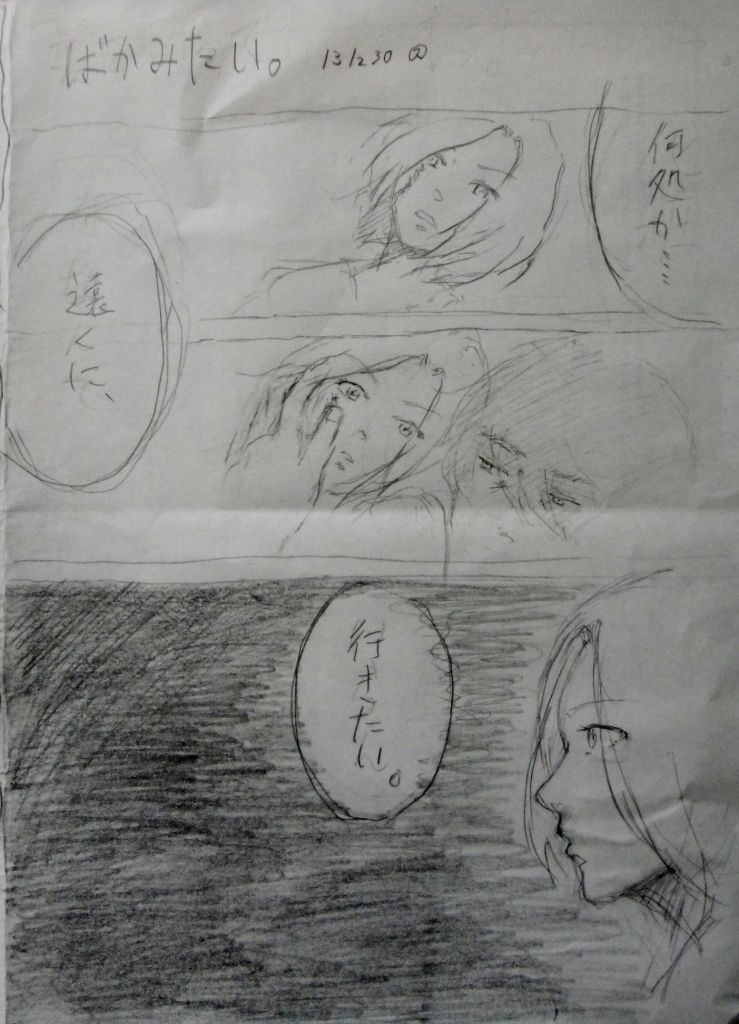 ばかみたい。 131230 ②
何処か…
遠くに、
行きたい。